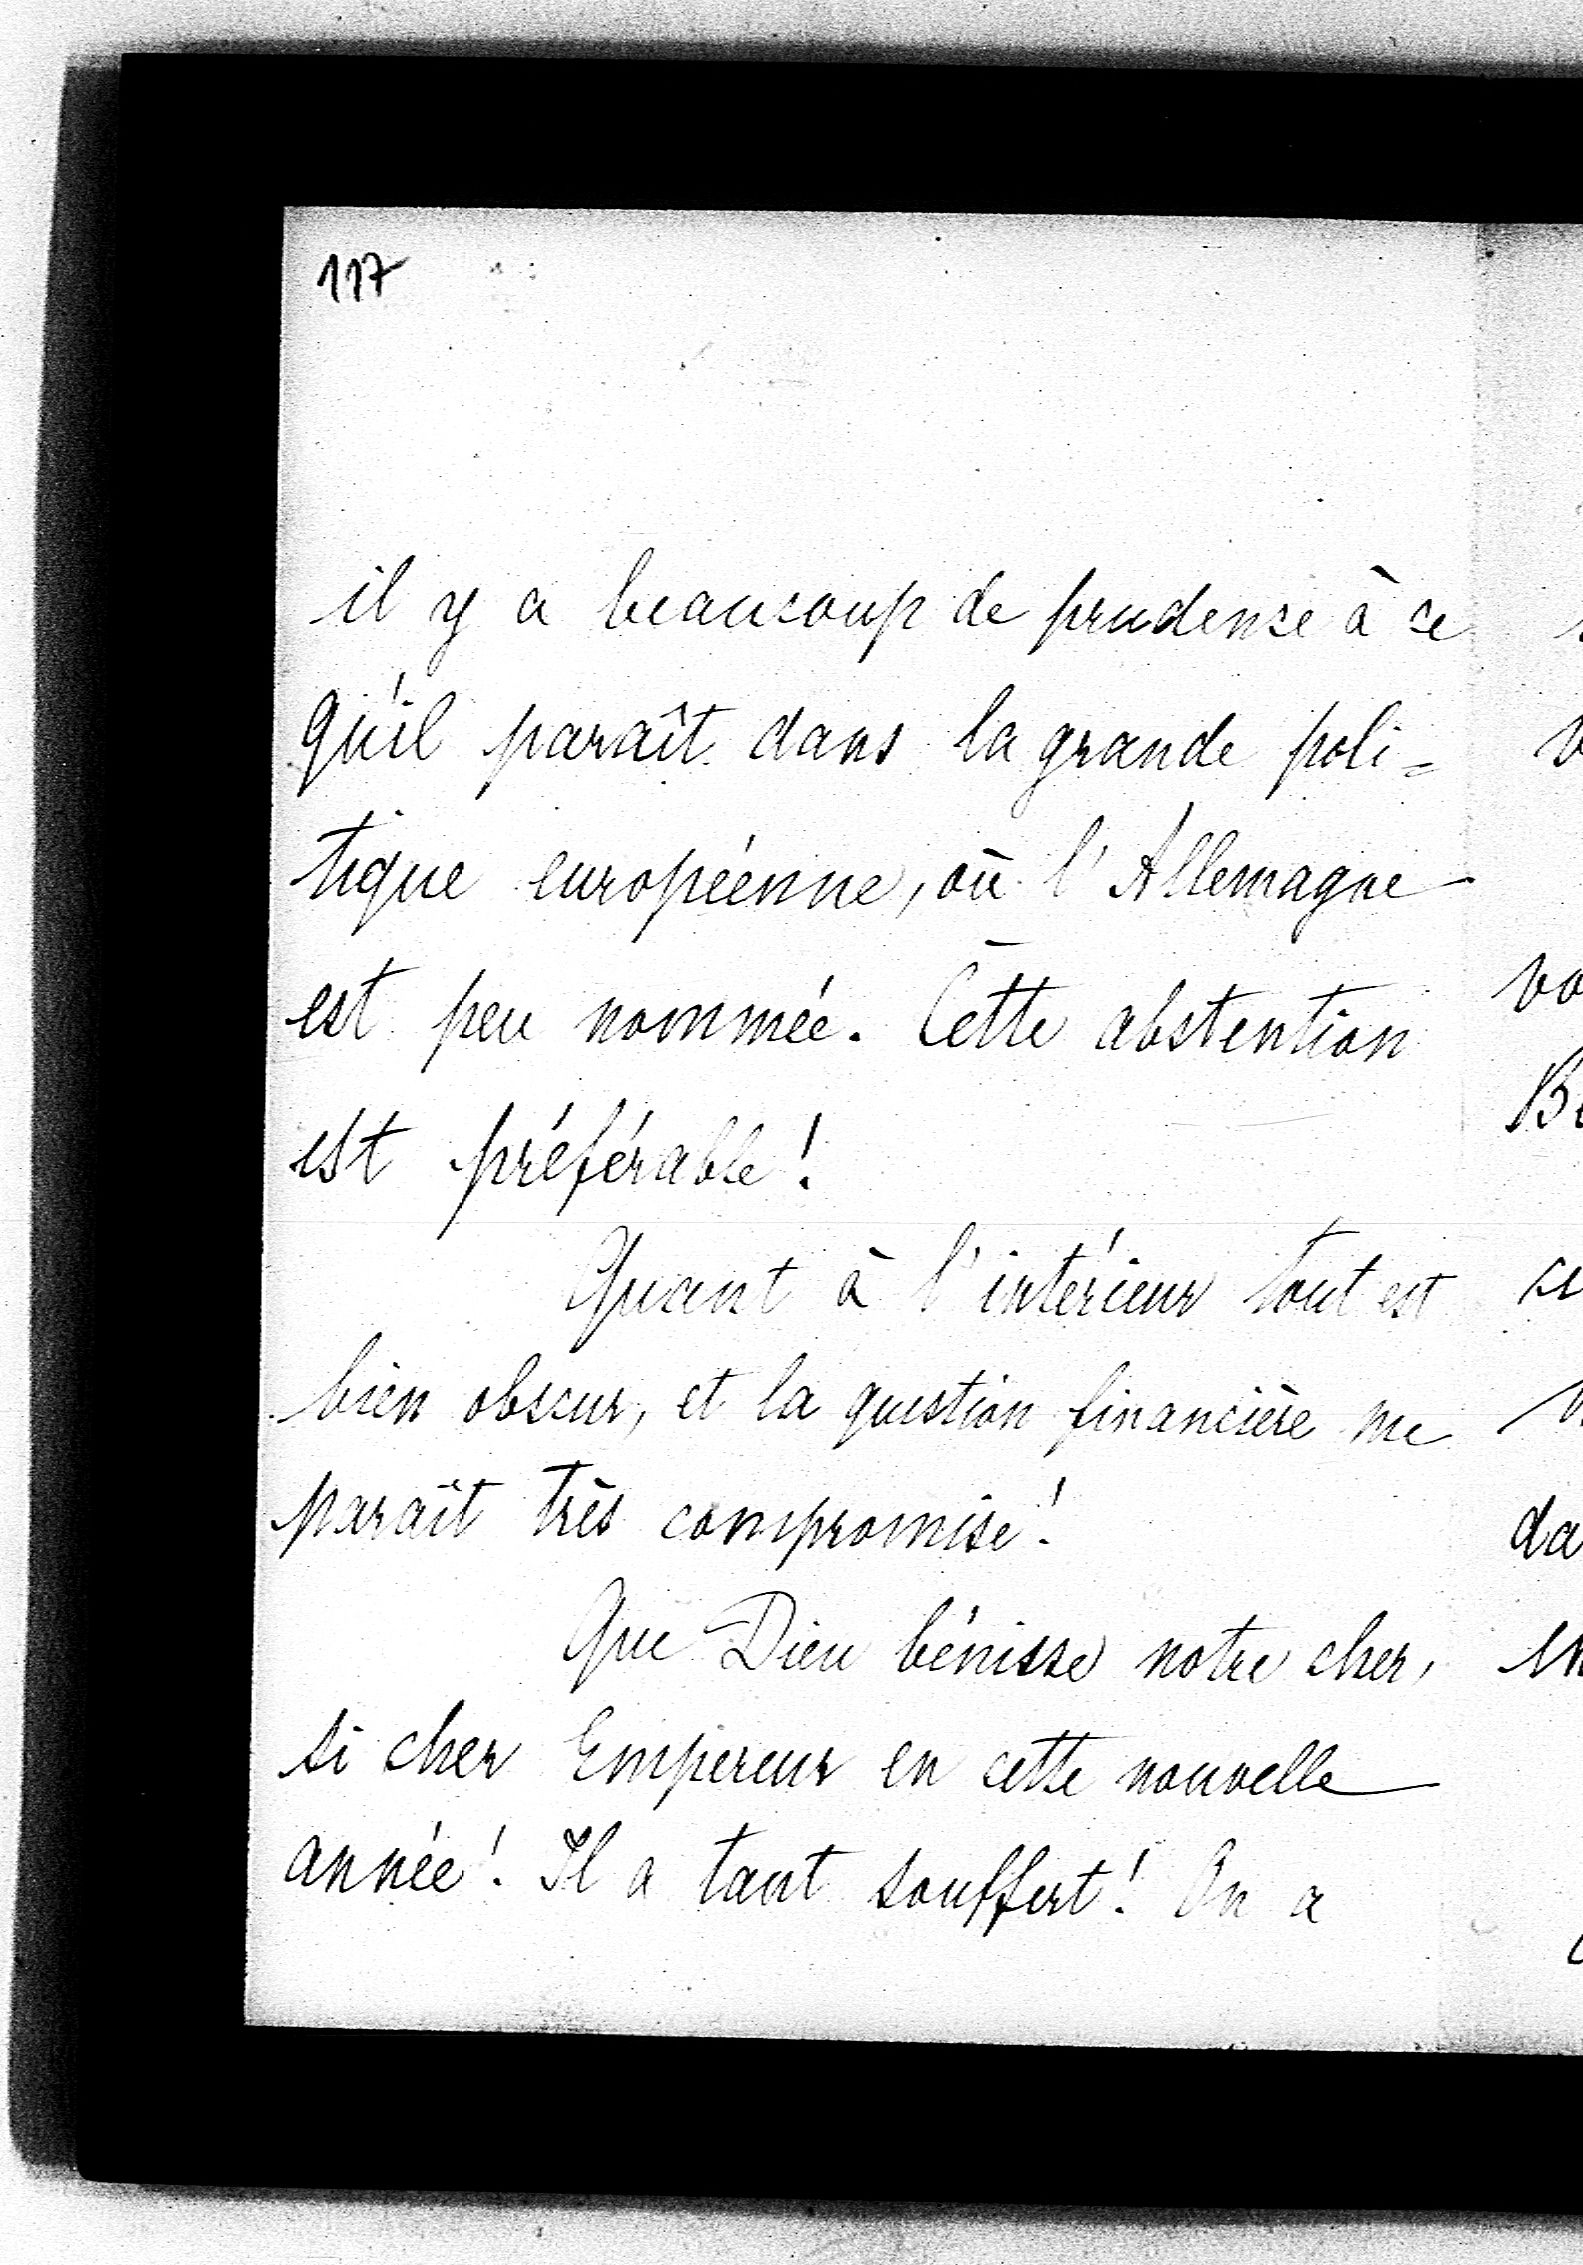 117
il y a beaucoup de prudence à ce
qu'il paraît dans la grande poli=
tique européenne, où l'Allemagne
est peu nommée. Cette abstention
est préférable!
Quant à l'intérieur tout est
bien obscur, et la question financière me
paraît très compromise!
Que Dieu bénisse notre cher,
si cher Empereur en cette nouvelle
année! Il a tant souffert! On a